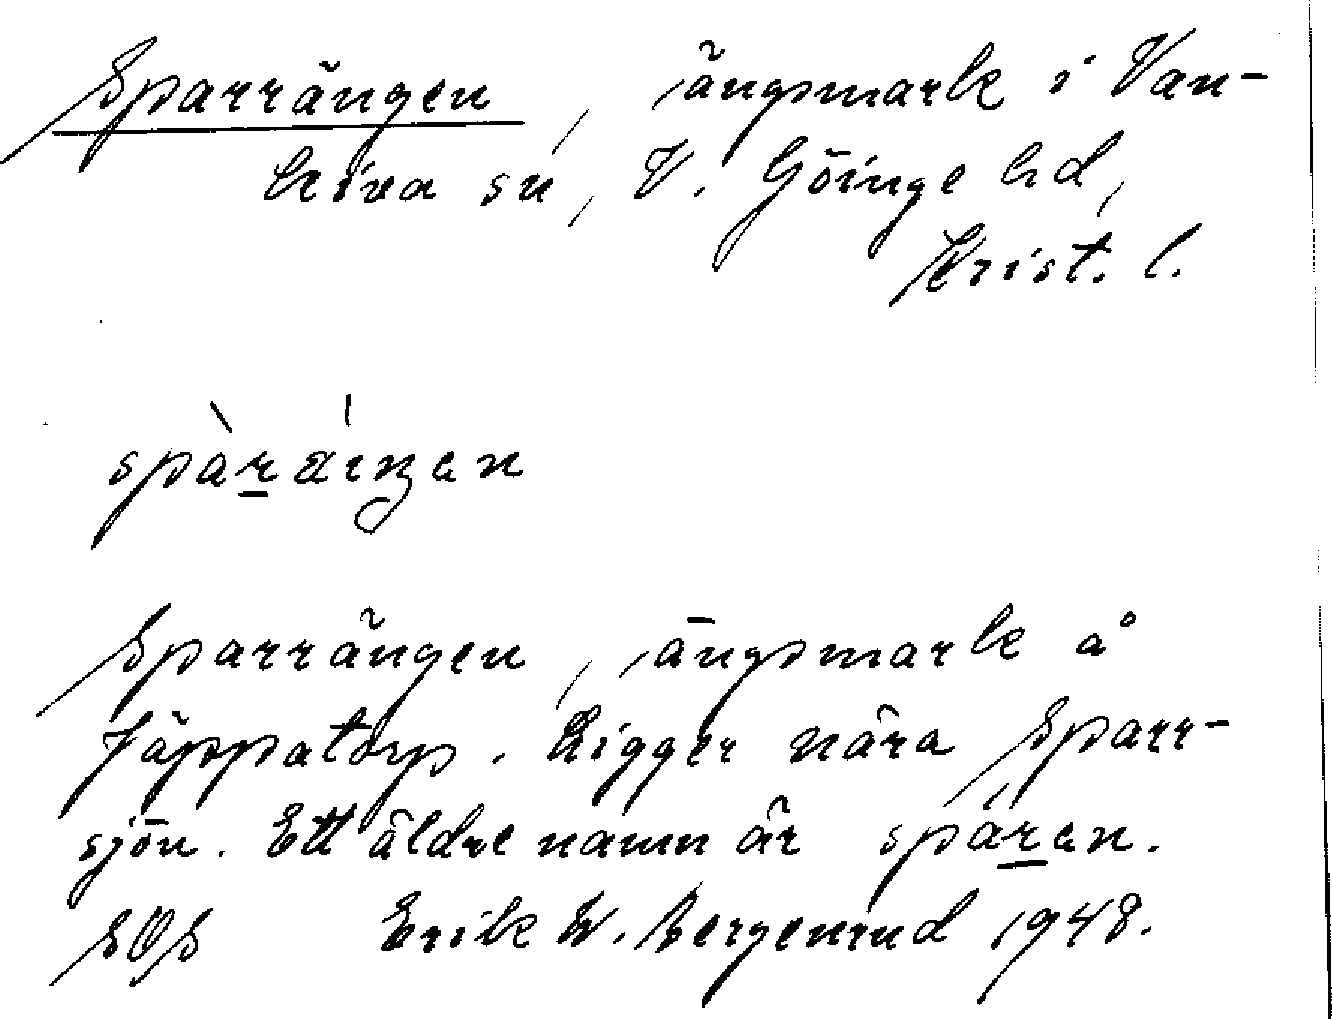 Sparrängen, ängsmark i Van-
kiva sn, V. Göinge hd,
Krist. l.
spàṟáiŋan
Sparrängen, ängsmark å
Jäppatorp. Ligger nära Sparr-
sjön. Ett äldre namn är spáṟan.
SOS Erik W. Bergenrud 1948.